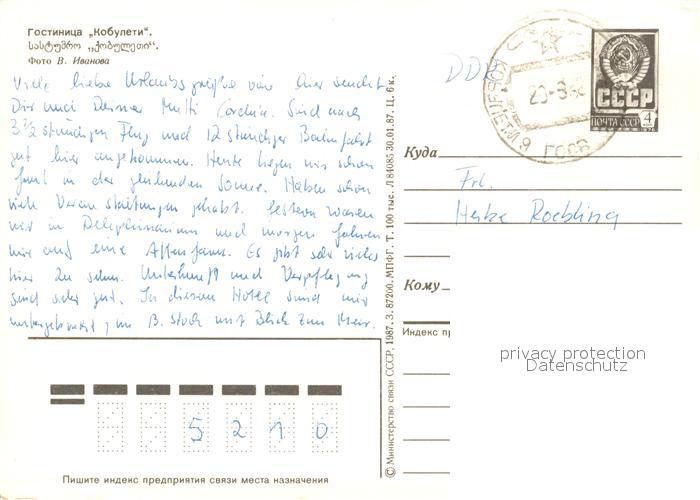 Гостиница „Кобулети“.
სასტუმრო „ქობულეთი“.
Фото В. Иванова
Viele liebe Urlaubsgrüße von hier sendet
Dir und Deiner Mutti Cordula. Sind nach
3½ stündigen Flug und 12 stündiger Bahnfahrt
gut hier angekommen. Heute liegen wir schon
faul in der glühenden Sonne. Haben schon
viele Veranstaltungen gehabt. Gestern waren
wir in Delephinarium und morgen fahren
wir auf eine Affenfarm. Es gibt sehr vieles
hier zu sehen. Unterkunft und Verpflegung
sind sehr gut. In diesem Hotel sind wir
untergebracht, im 8. Stock mit Blick zum Meer.
DDR
КОБУЛЕТИ 9 ГССР
СССР
ПОЧТА СССР 4
1976
Куда
Frl.
Heike Roebling
Кому
Индекс пр
privacy protection
Datenschutz
5210
Пишите индекс предприятия связи места назначения
© Министерство связи СССР, 1987. З. 87200. МПФГ. Т. 100 тыс. Л 84085 30.01.87. Ц. 6 к.